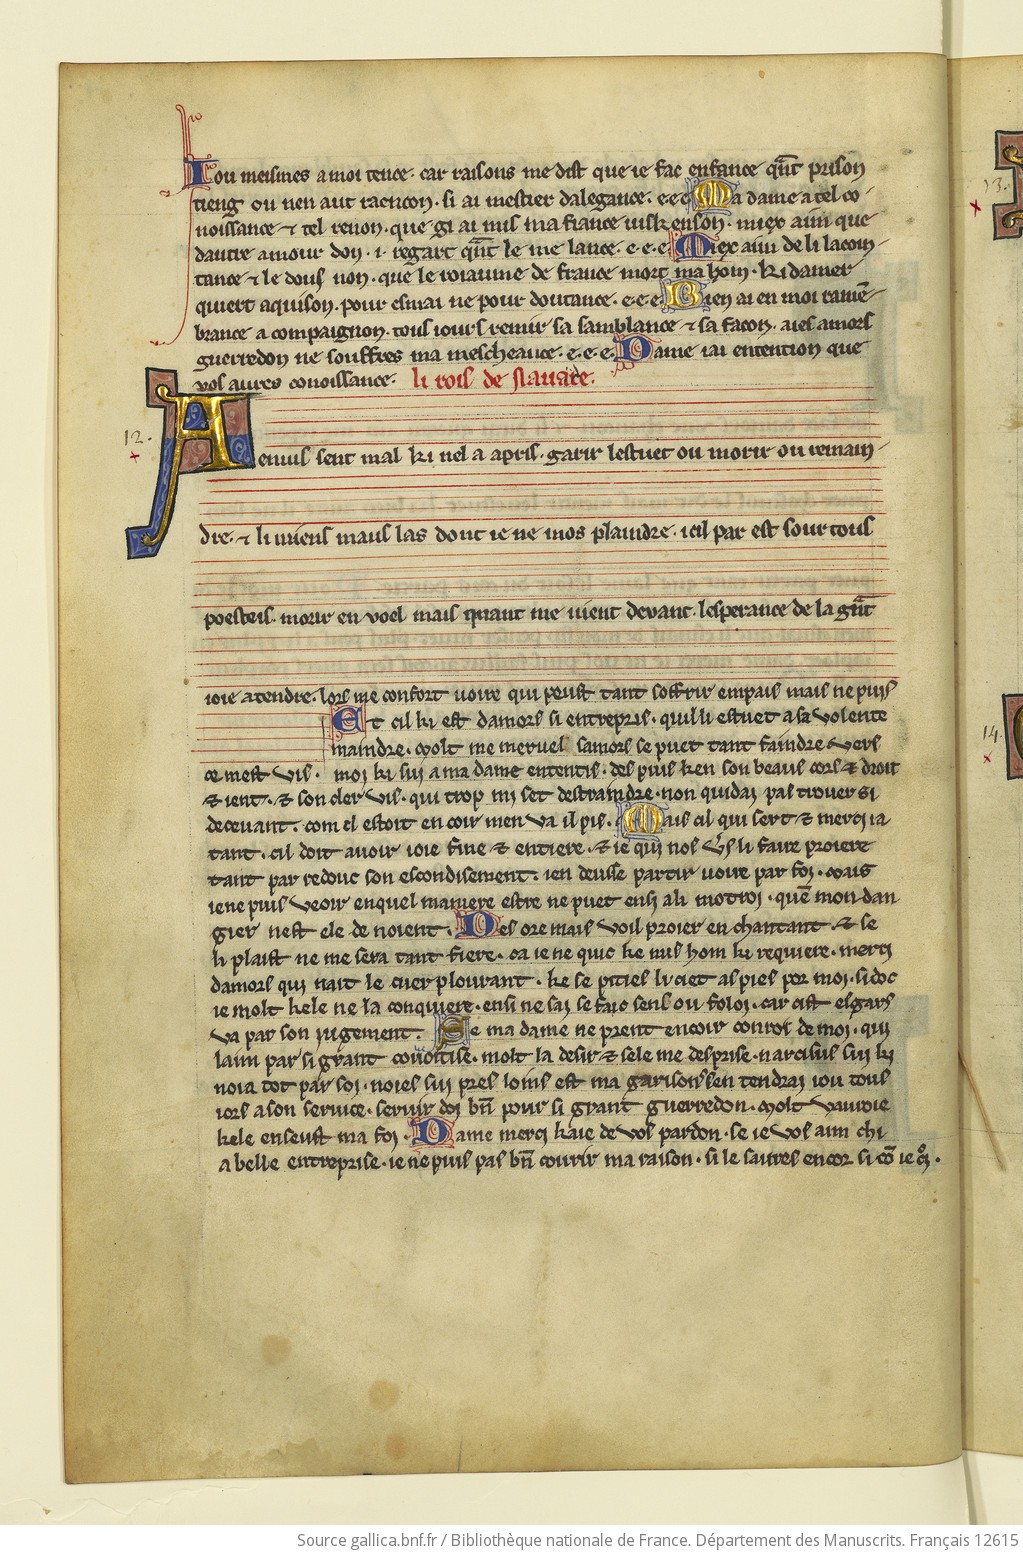 Iou meismes a moi tence. car raisons me dist que ie fac enfance qñt prison
tieng ou nen aut raencon. si ai mestier dalegance. e.e.e. Ma dame a tel co
noissance ⁊ tel renon. que gi ai mis ma fiance enson. miex aim que
dautre amour don. i. regart qñt le me lance. e.e.e. Miex aim de li lacoin
tance ⁊ le dous non. que le roiaume de france mort mahom. ki damer
quiert aquison. pour esmai ne pour doutance. e.e.e. Bien ai en moi ramẽ
brance a compaignon. tous iours remir sa samblance ⁊ sa facon. aies amors
guerredon ne souffres ma mescheance. e.e.e. Dame iai entention que
vos aures conoissance. li rois de nauare.
12.
Aenuis sent mal ki nel a apris. garir lestuet ou morir ou remain
dre. ⁊ li miens maus las dont ie ne mos plaindre. icil par est sour tous
poesteis. morir en voel mais quant me vient devant. lesperance de la gñt
ioie atendre. lors me confort voire qui peust tant soffrir empais mais ne puis
Et cil ki est damors si entrepris. quil li estuet a sa volente
maindre. Molt me mervel samors se puet tant faindre vers
ce mest vis. moi ki sui a ma dame ententis. des puis ken son beaus cors ⁊ droit
⁊ ient. ⁊ son cler vis. qui trop mi set destraindre. non quidai pas trover si
decevant. com el estoit en coir men va il pis. Mais cil qui sert ⁊ merci ia
tant. cil doit avoir ioie fine ⁊ entiere. ⁊ ie qui nos vers li faire proiere
tant par redouc son escondisement. ien deusse partir voire par foi. Mais
ie ne puis veoir enquel maniere estre ne puet ensi ali motroi. quẽ mon dan
gier nest ele de noient. Des ore mais voil proier en chantant. ⁊ se
li plaist ne me sera tant fiere. ca ie ne quic ke nus hom ki requiere. merci
damors qui nait le cuer plourant. ke se pities li ciet as pies por moi. si doc
ie molt kele ne la conquiere. ensi ne sai se faic sens ou foloi. car cist esgars
va par son iugement. Se ma dame ne prent encoir conroi de moi. qui
laim par si grant covoitise. molt la desir ⁊ sele me desprise. narcisus sui ki
noia tot par soi. noies sui pres loins est ma garisons sen tendrai iou tous
iors a son service. servir doi bñ pour si grant guerredon. Molt vauroie
kele enseust ma foi. Dame merci kaie de vos pardon. se ie vos aim chi
a belle entreprise. ie ne puis pas bñ couvrir ma raison. si le saures encor si cõ ie
13.
14.
Source gallica.bnf.fr / Bibliothèque nationale de France. Département des Manuscrits. Français 12615